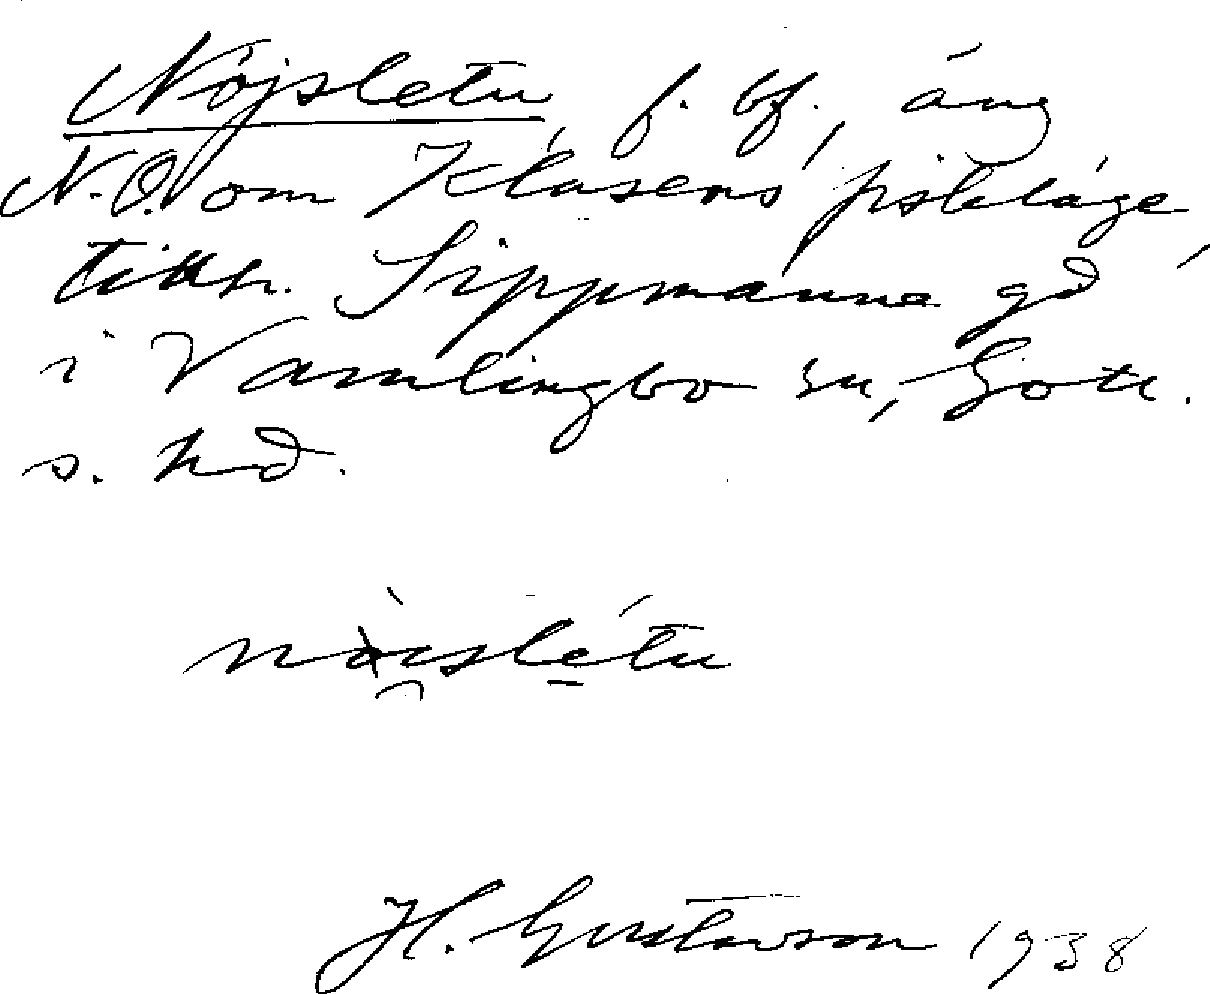 Nöjsletu f. bf., äng
N.O. om Kläsens fiskläge
tillh. Sippmanne gd,
i Vamlingbo sn, Gotl.
s. hd.
nöɪslétu
H. Gustavson 1938